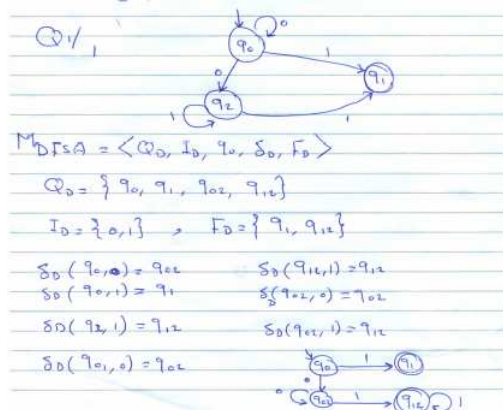 Q1/1
0
q0
1
q1
0
1
q2
1
M DFSA = < QD, ID, q0, δD, FD >
QD = { q0, q1, q02, q12 }
ID = { 0, 1 } , FD = { q1, q12 }
δD ( q0, 0 ) = q02 δD ( q12, 1 ) = q12
δD ( q0, 1 ) = q1 δD ( q02, 0 ) = q02
δD ( q2, 1 ) = q12 δD ( q02, 1 ) = q12
δD ( q01, 0 ) = q02
q0 1 q1
0
0 q02 1 q12 1